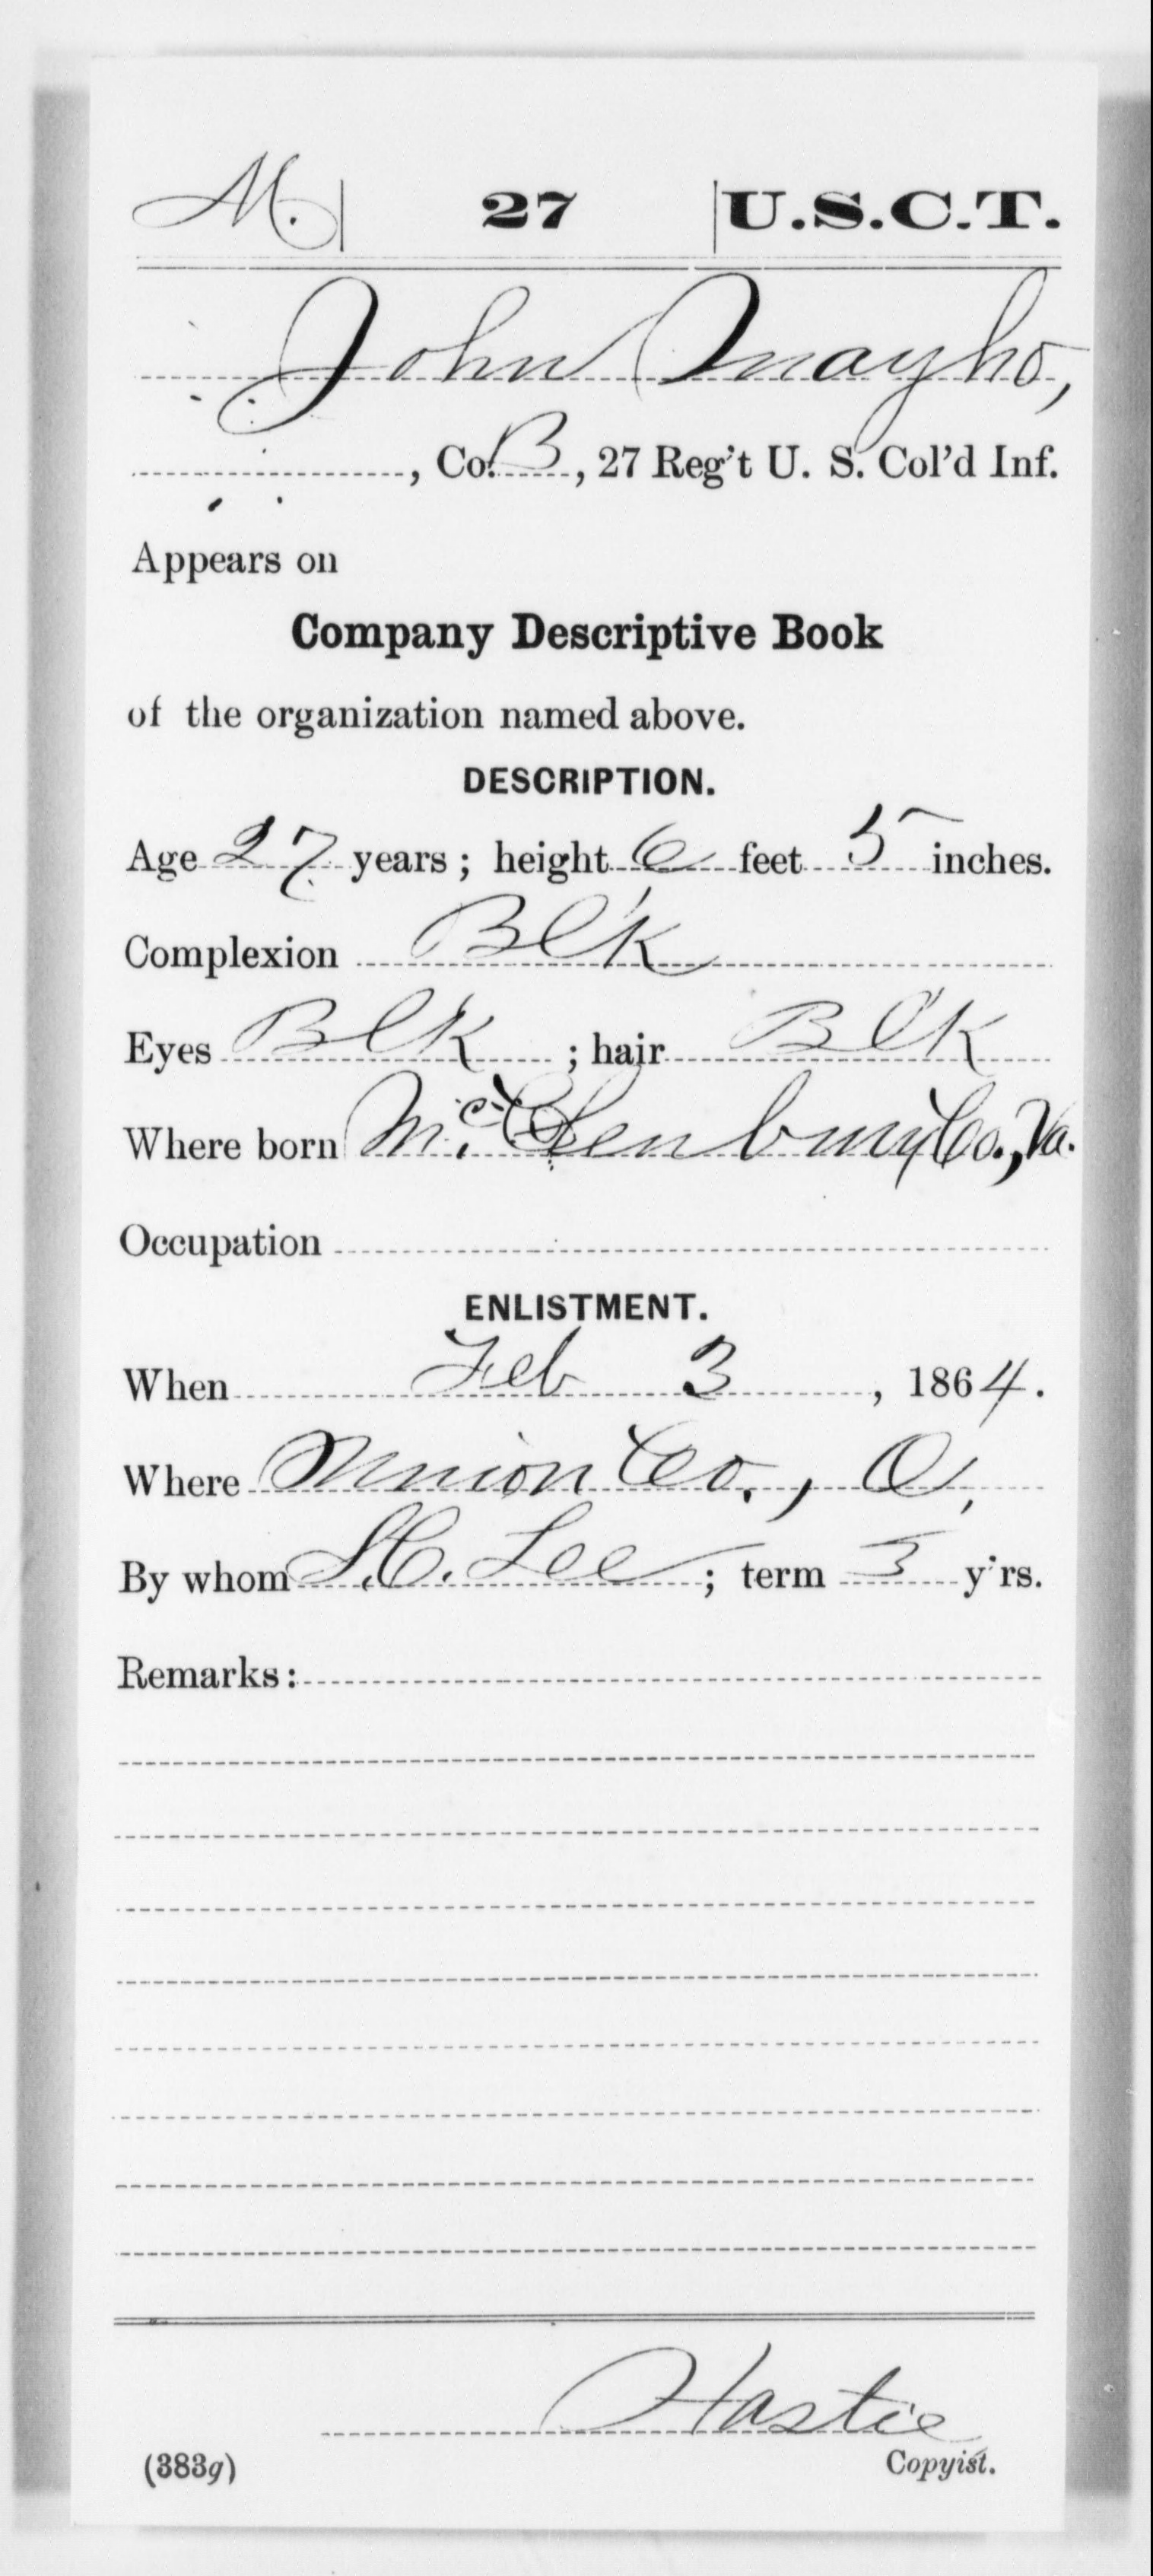 M. 27 U.S.C.T.
John Mayho,
, Co. B, 27 Reg't U. S. Col'd Inf.
Appears on
Company Descriptive Book
of the organization named above.
DESCRIPTION.
Age 27 years; height 6 feet 5 inches.
Complexion Bl'k
Eyes Blk ; hair Bl'k
Where born Co., Va.
Occupation
ENLISTMENT.
When Feb 3, 1864.
Where Union Co., O,
By whom Lee; term 3 y'rs.
Remarks:
Hastie
(383g) Copyist.